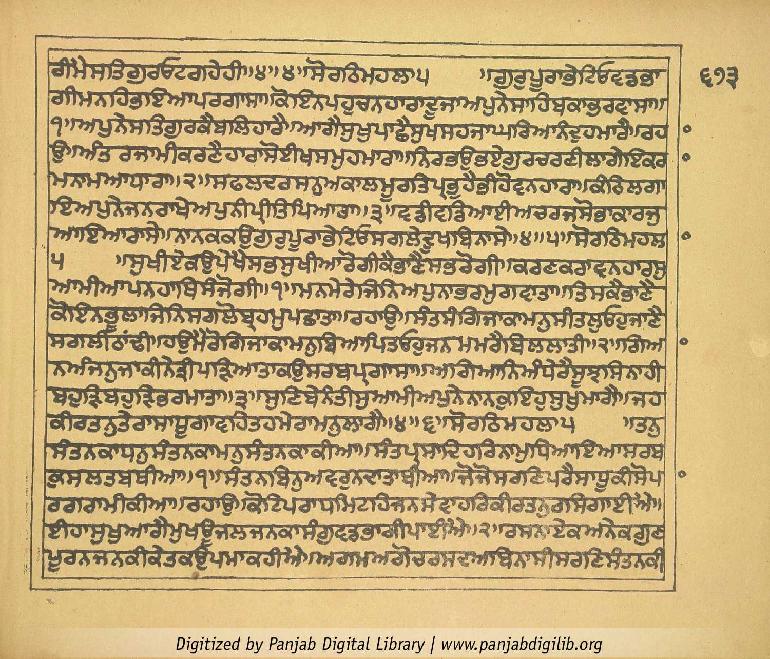 ਗੀਮੈਸਤਿਗੁਰਓਟਗਹੇਹੀ॥੪॥੪॥ਸੋਰਠਿਮਹਲਾ੫ ॥ਗੁਰੁਪੂਰਾਭੇਟਿਓਵਡਭਾ ੬੧੩
ਗੀਮਨਹਿਭਇਆਪਰਗਾਸਾ॥ਕੋਇਨਪਹੁਚਨਹਾਰਾਦੂਜਾਅਪੁਨੇਸਾਹਿਬਕਾਭਰਵਾਸਾ॥
੧॥ਅਪੁਨੇਸਤਿਗੁਰਕੈਬਲਿਹਾਰੈ॥ਆਗੈਸੁਖੁਪਾਛੈਸੁਖਸਹਜਾਘਰਿਆਨੰਦੁਹਮਾਰੈ॥ਰਹਾ
ਉ॥ਅੰਤਰਜਾਮੀਕਰਣੈਹਾਰਾਸੋਈਖਸਮੁਹਮਾਰਾ॥ਨਿਰਭਉਭਏਗੁਰਚਰਣੀਲਾਗੇਇਕਰਾ
ਮਨਾਮਆਧਾਰਾ॥੨॥ਸਫਲਦਰਸਨੁਅਕਾਲਮੂਰਤਿਪ੍ਰਭੁਹੈਭੀਹੋਵਨਹਾਰਾ॥ਕੰਠਿਲਗਾ
ਇਅਪੁਨੇਜਨਰਾਖੇਅਪੁਨੀਪ੍ਰੀਤਿਪਿਆਰਾ॥੩॥ਵਡੀਵਡਿਆਈਅਚਰਜਸੋਭਾਕਾਰਜੁ
ਆਇਆਰਾਸੇ॥ਨਾਨਕਕਉਗੁਰੁਪੂਰਾਭੇਟਿਓਸਗਲੇਦੂਖਬਿਨਾਸੇ॥੪॥੫॥ਸੋਰਠਿਮਹਲਾ
੫ ॥ਸੁਖੀਏਕਉਪੇਖੈਸਭਸੁਖੀਆਰੋਗੀਕੈਭਾਣੈਸਭਰੋਗੀ॥ਕਰਣਕਰਾਵਨਹਾਰਸੁ
ਆਮੀਆਪਨਹਾਥਿਸੰਜੋਗੀ॥੧॥ਮਨਮੇਰੇਜਿਨਿਅਪੁਨਾਭਰਮੁਗਵਾਤਾ॥ਤਿਸਕੈਭਾਣੈ
ਕੋਇਨਭੂਲਾਜਿਨਿਸਗਲੋਬ੍ਰਹਮੁਪਛਾਤਾ॥ਰਹਾਉ॥ਸੰਤਸੰਗਿਜਾਕਾਮਨੁਸੀਤਲੁਓਹੁਜਾਣੈ
ਸਗਲੀਠਾਂਢੀ॥ਹਉਮੈਰੋਗਿਜਾਕਾਮਨੁਬਿਆਪਿਤਓਹੁਜਨਮਿਮਰੈਬਿਲਲਾਤੀ॥੨॥ਗਿਆ
ਨਅੰਜਨੁਜਾਕੀਨੇਤ੍ਰੀਪੜਿਆਤਾਕਉਸਰਬਪ੍ਰਗਾਸਾ॥ਅਗਿਆਨਿਅੰਧੇਰੈਸੂਝਸਿਨਾਹੀ
ਬਹੁੜਿਬਹੁੜਿਭਰਮਾਤਾ॥੩॥ਸੁਣਿਬੇਨੰਤੀਸੁਆਮੀਅਪੁਨੇਨਾਨਕੁਇਹੁਸੁਖੁਮਾਗੈ॥ਜਹ
ਕੀਰਤਨੁਤੇਰਾਸਾਧੂਗਾਵਹਿਤਹਮੇਰਾਮਨੁਲਾਗੈ॥੪॥੬॥ਸੋਰਠਿਮਹਲਾ੫ ॥ਤਨੁ
ਸੰਤਨਕਾਧਨੁਸੰਤਨਕਾਮਨੁਸੰਤਨਕਾਕੀਆ॥ਸੰਤਪ੍ਰਸਾਦਿਹਰਿਨਾਮੁਧਿਆਇਆਸਰਬ
ਕੁਸਲਤਬਥੀਆ॥੧॥ਸੰਤਨਬਿਨੁਅਵਰੁਨਦਾਤਾਬੀਆ॥ਜੋਜੋਸਰਣਿਪਰੈਸਾਧੂਕੀਸੋਪਾ
ਰਗਰਾਮੀਕੀਆ॥ਰਹਾਉ॥ਕੋਟਿਪਰਾਧਮਿਟਹਿਜਨਸੇਵਾਹਰਿਕੀਰਤਨੁਰਸਿਗਾਈਐ॥
ਈਹਾਸੁਖੁਆਗੈਮੁਖਊਜਲਜਨਕਾਸੰਗੁਵਡਭਾਗੀਪਾਈਐ॥੨॥ਰਸਨਾਏਕਅਨੇਕਗੁਣ
ਪੂਰਨਜਨਕੀਕੇਤਕਉਪਮਾਕਹੀਐ॥ਅਗਮਅਗੋਚਰਸਦਅਬਿਨਾਸੀਸਰਣਿਸੰਤਨਕੀ
Digitized by Panjab Digital Library | www.panjabdigilib.org